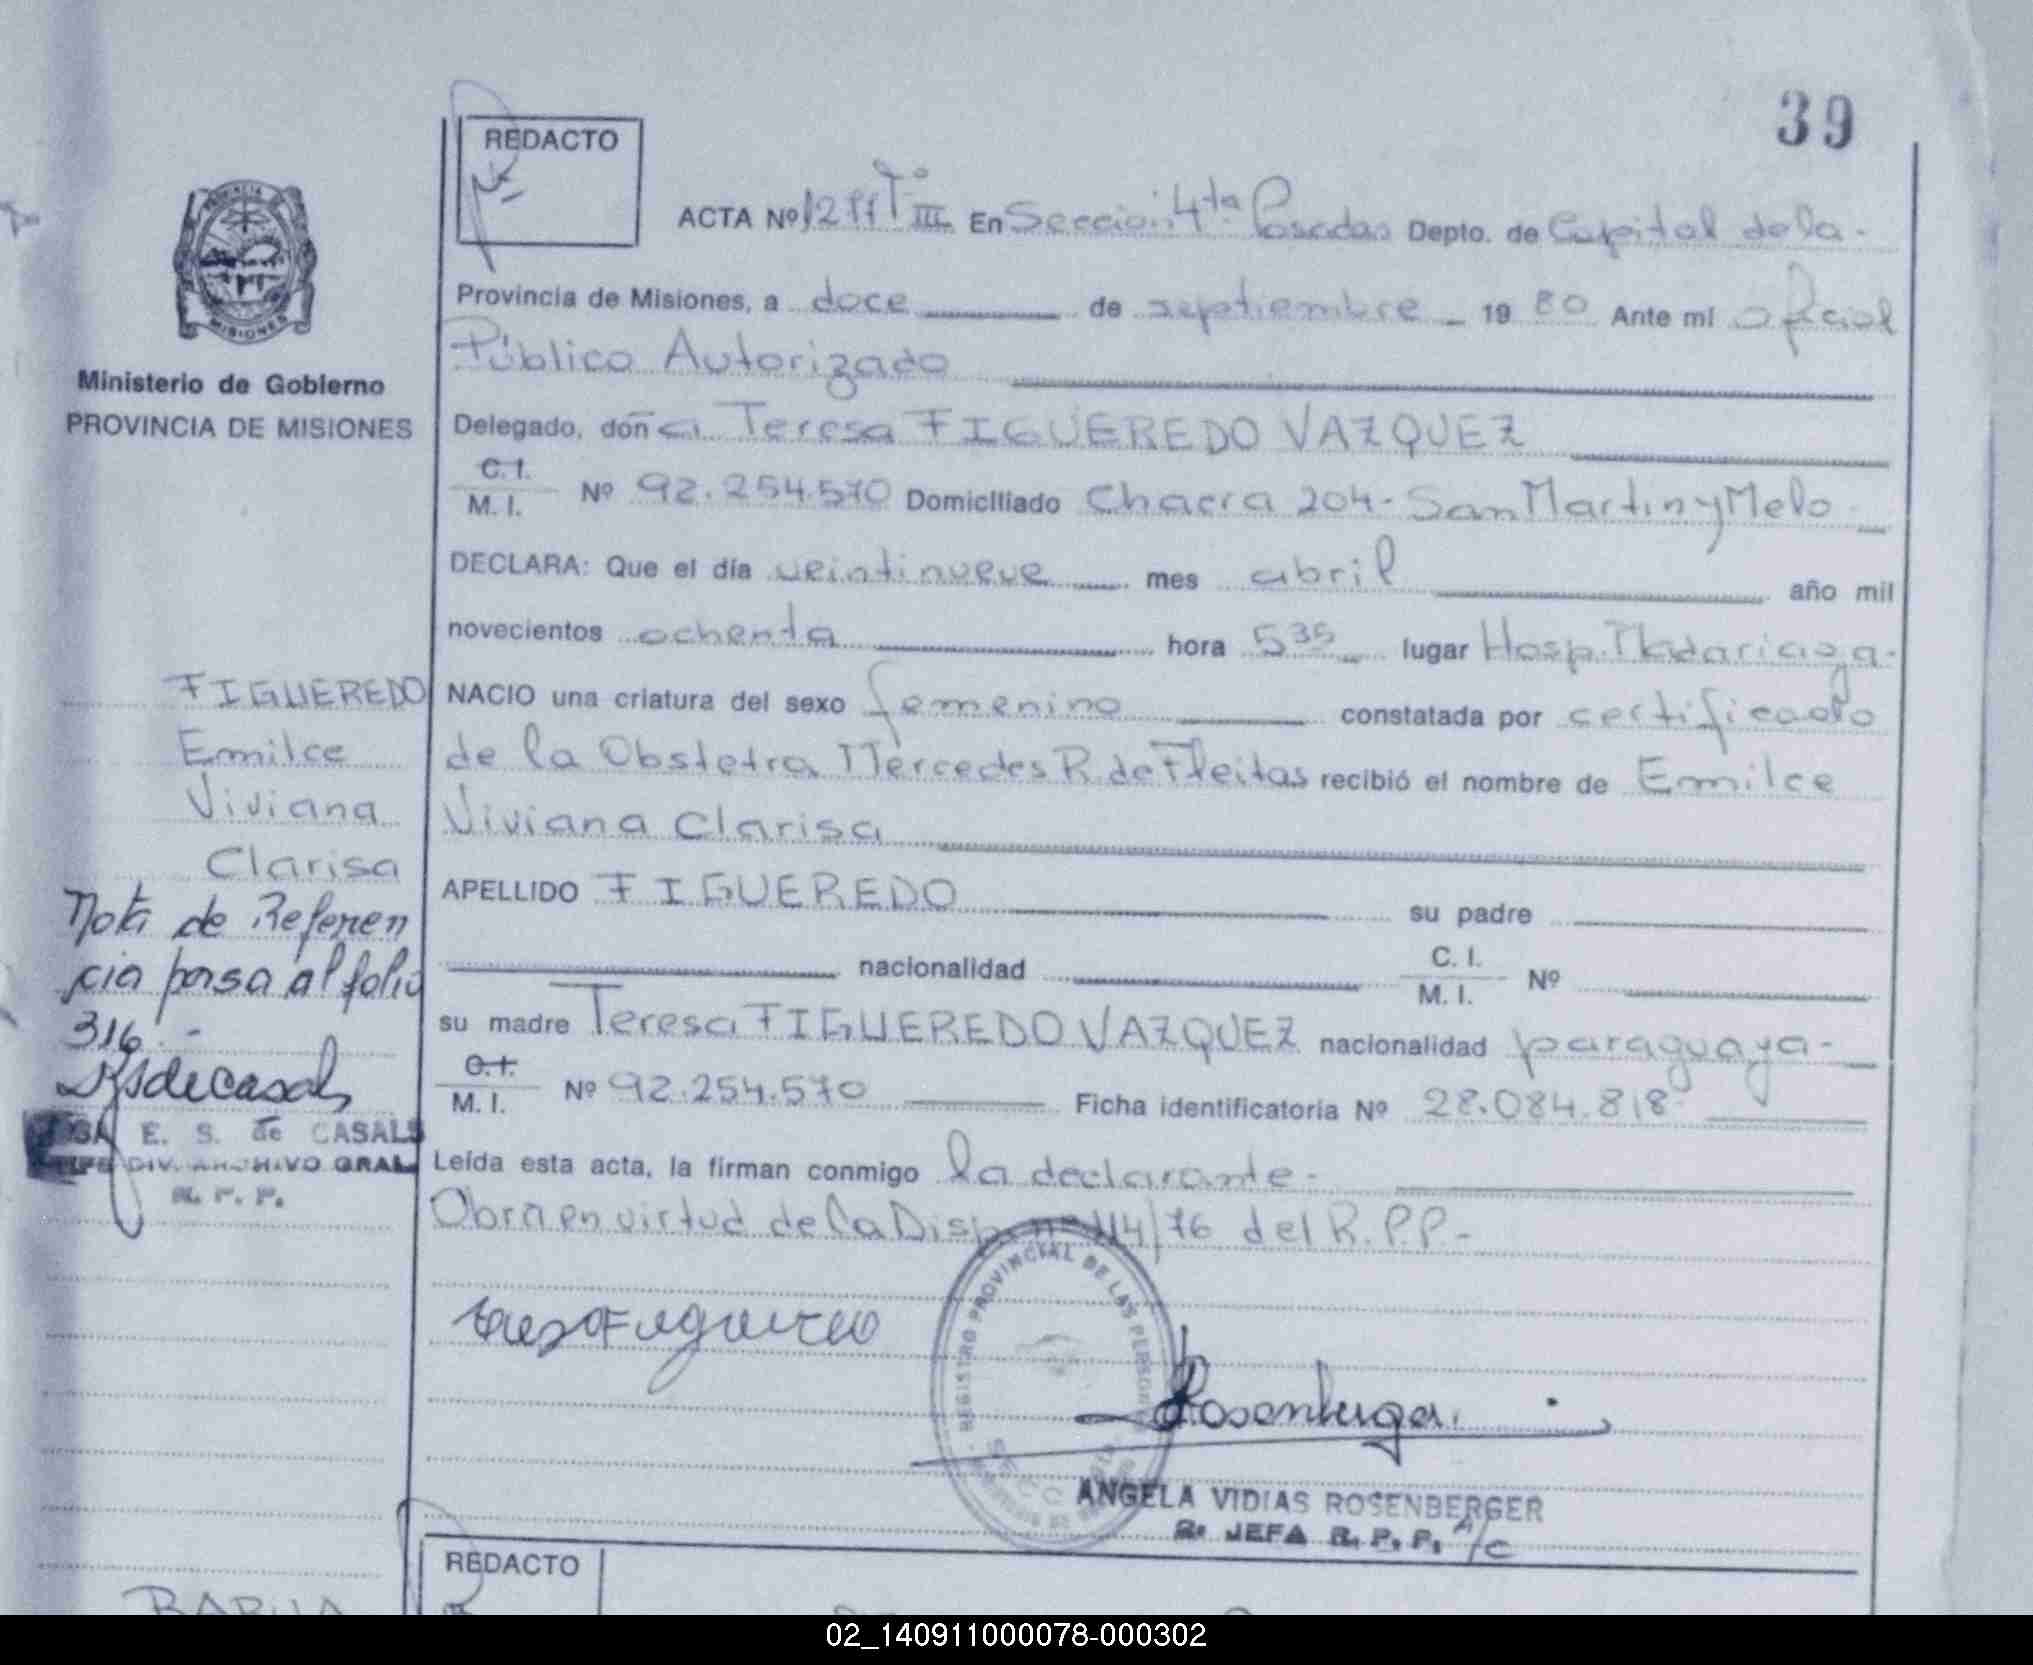 39
REDACTO
ACTA Nº 1211 Tº III En Sección 4ta Posadas Depto. de Capital de la -
Provincia de Misiones, a doce de septiembre 1980 Ante mí oficial
Público Autorizado
Delegado, doña Teresa FIGUEREDO VAZQUEZ
C.I. / M.I. Nº 92.254.570 Domiciliado Chacra 204 - San Martin y Melo
DECLARA: Que el día veintinueve mes abril año mil
novecientos ochenta hora 5 35 lugar Hosp. Madariaga -
NACIO una criatura del sexo femenino constatada por certificado
de la Obstetra Mercedes R. de Fleitas recibió el nombre de Emilce
Viviana Clarisa
APELLIDO FIGUEREDO su padre
nacionalidad C.I. / M.I. Nº
su madre Teresa FIGUEREDO VAZQUEZ nacionalidad paraguaya -
C.I. / M.I. Nº 92.254.570 Ficha identificatoria Nº 28.084.818
Leída esta acta, la firman conmigo la declarante -
Obra en virtud de la Disp. nº 114/76 del R.P.P. -
REGISTRO PROVINCIAL DE LAS PERSONAS
ANGELA VIDIAS ROSENBERGER
2ª JEFA R. P. P. A/C
PROVINCIA
MISIONES
Ministerio de Gobierno
PROVINCIA DE MISIONES
FIGUEREDO
Emilce
Viviana
Clarisa
Nota de Referen
cia pasa al folio
316. -
E. S. de CASALS
JEFE DIV. ARCHIVO GRAL
R. P. P.
REDACTO
02_140911000078-000302